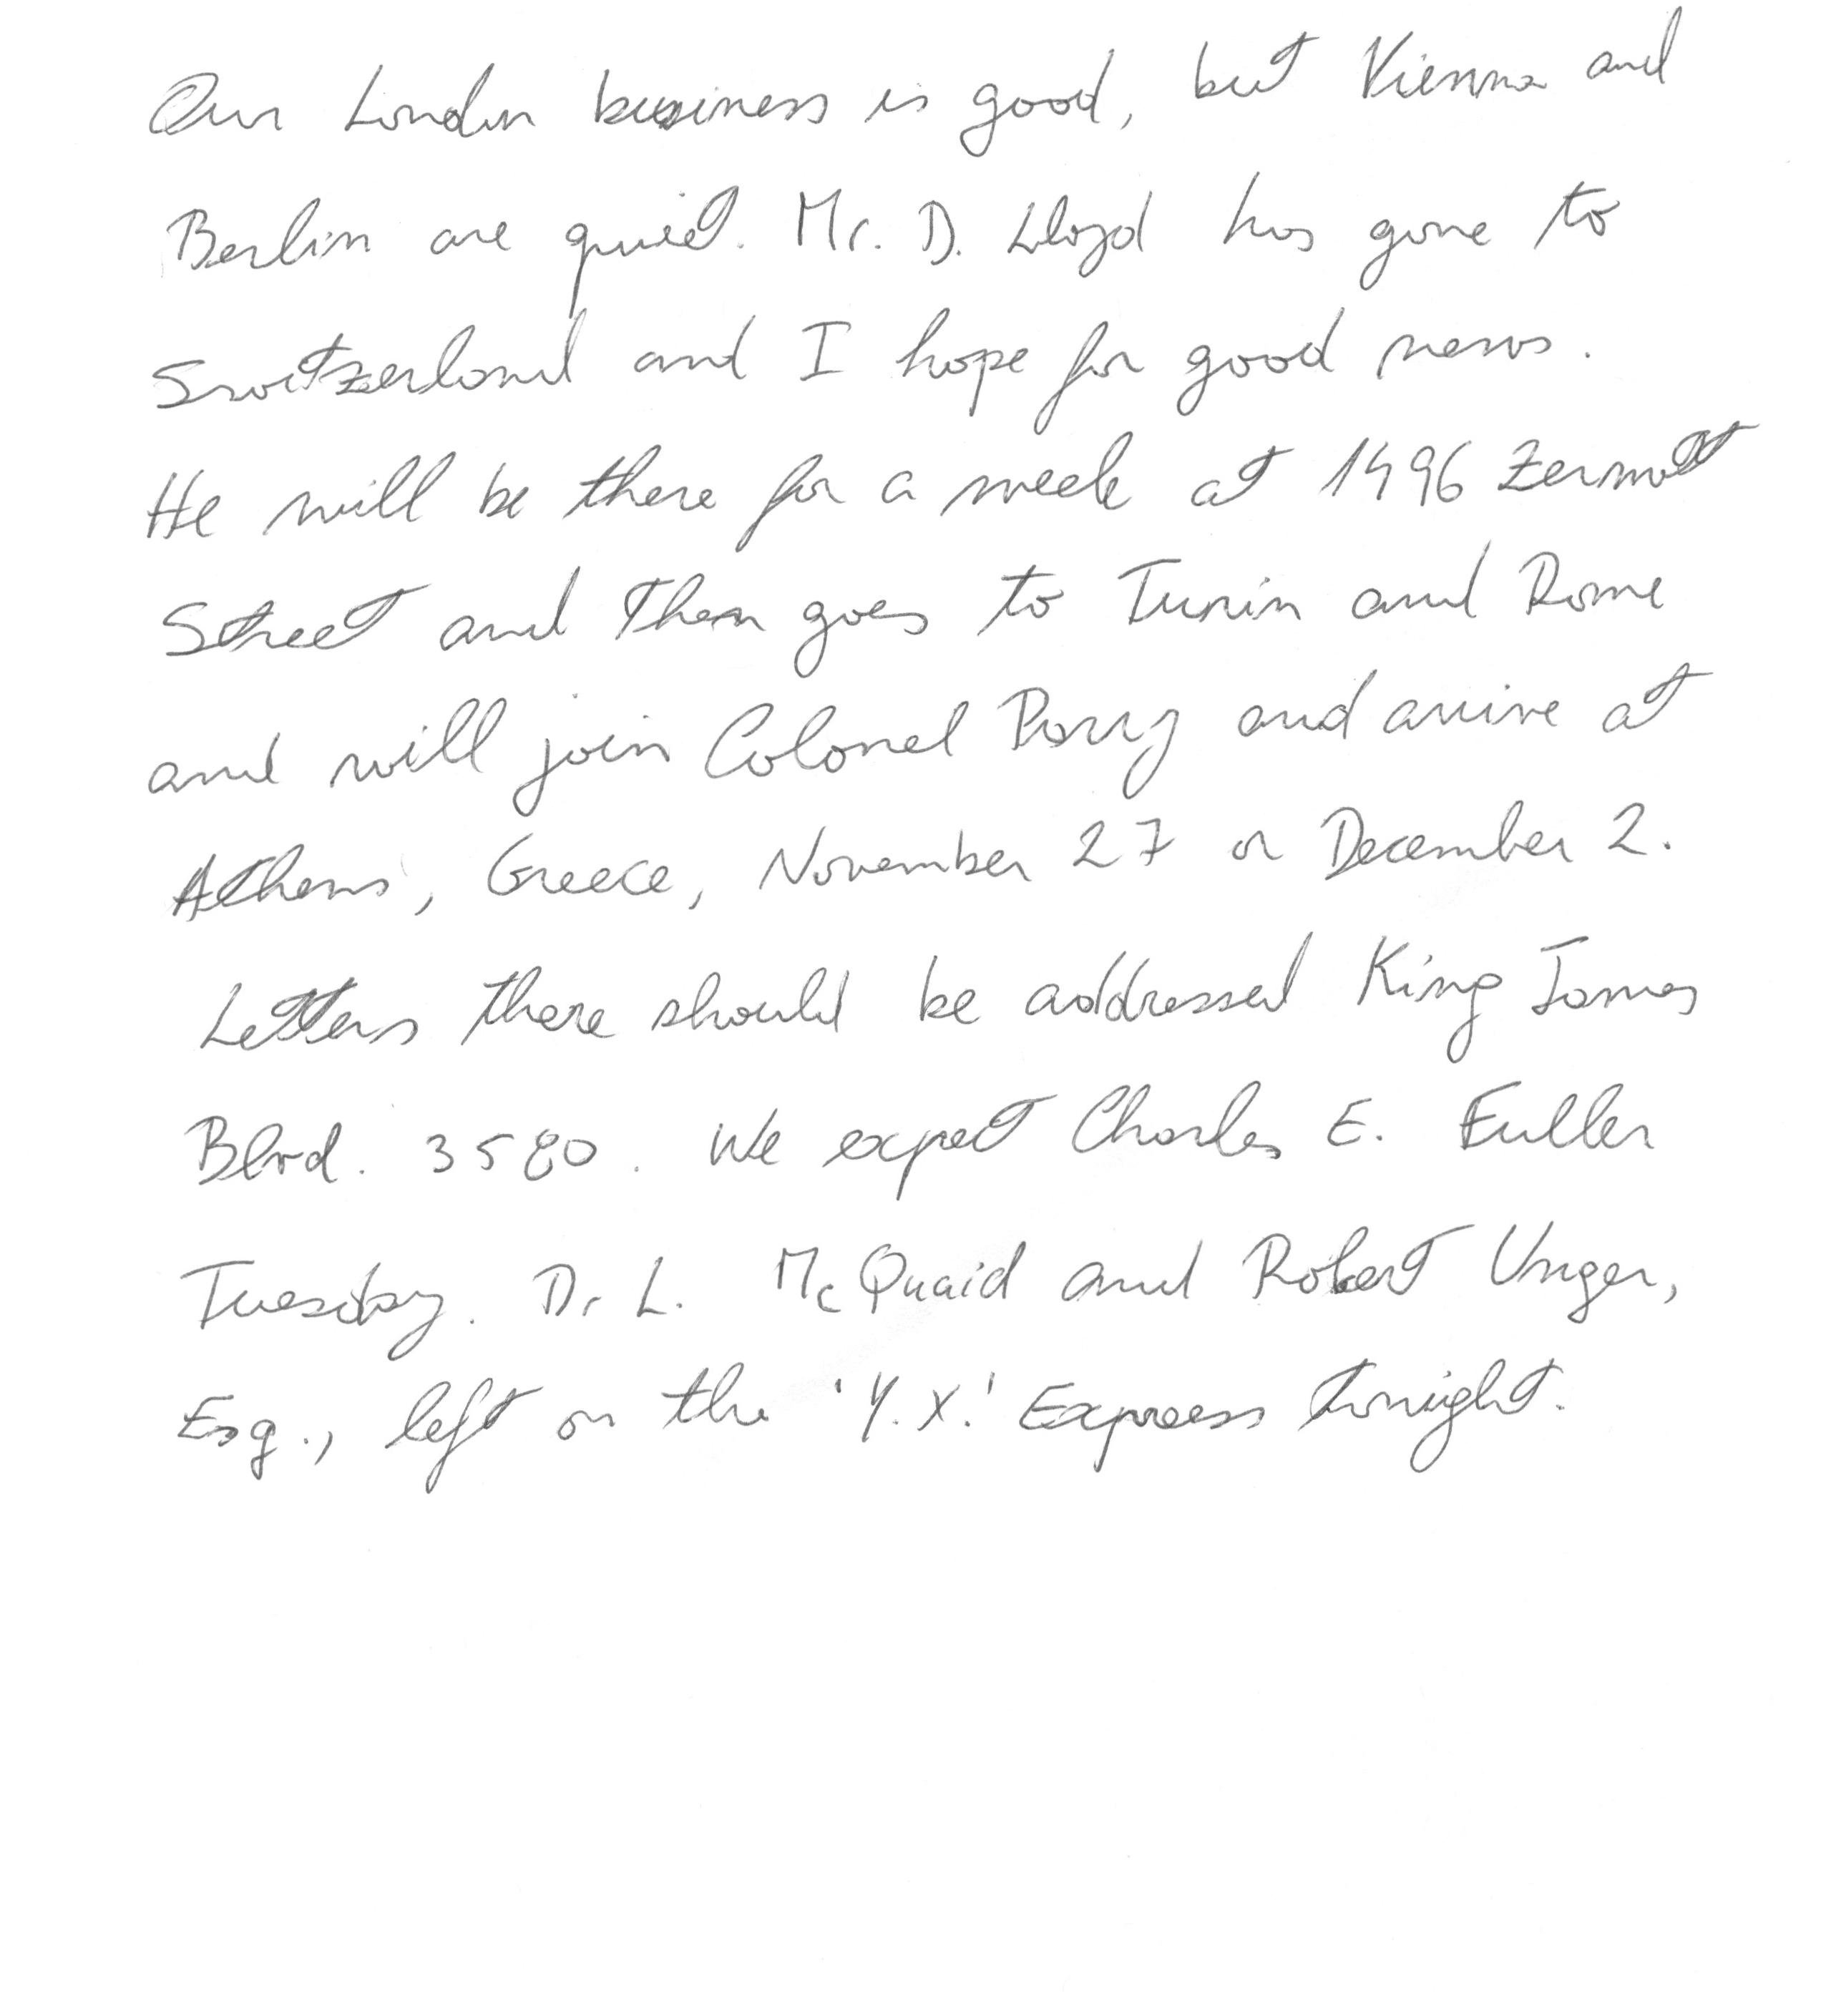 Our London business is good, but Vienna and
Berlin are quiet. Mr. D. Lloyd has gone to
Switzerland and I hope for good news.
He will be there for a week at 1496 Zermott
Street and then goes to Turin and Rome
and will join Colonel Parry and arrive at
Athens, Greece, November 27 or December 2.
Letters there should be addressed King James
Blvd. 3580. We expect Charles E. Fuller
Tuesday. Dr L. McQuaid and Robert Unger,
Esq., left on the 'Y.X.' Express tonight.